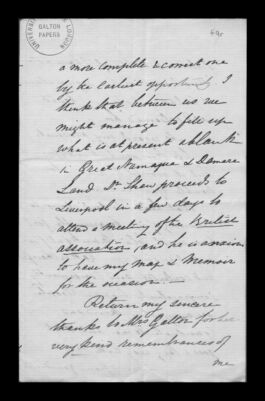 UNIVERSITY LONDON
GALTON
PAPERS
a more complete & correct one
by the earliest opportunity I
think that between us we
might manage to fill up
what is at present a blank
in Great Namaqua & Damara
Land Dr. Shaw proceeds to
Liverpool in a few days to
attend a meeting of the British
association, and he is anxious
to have my Map & Memoir
for the occasion. —
Return my sincere
thanks to Mrs Galton for her
very kind remembrances of
me